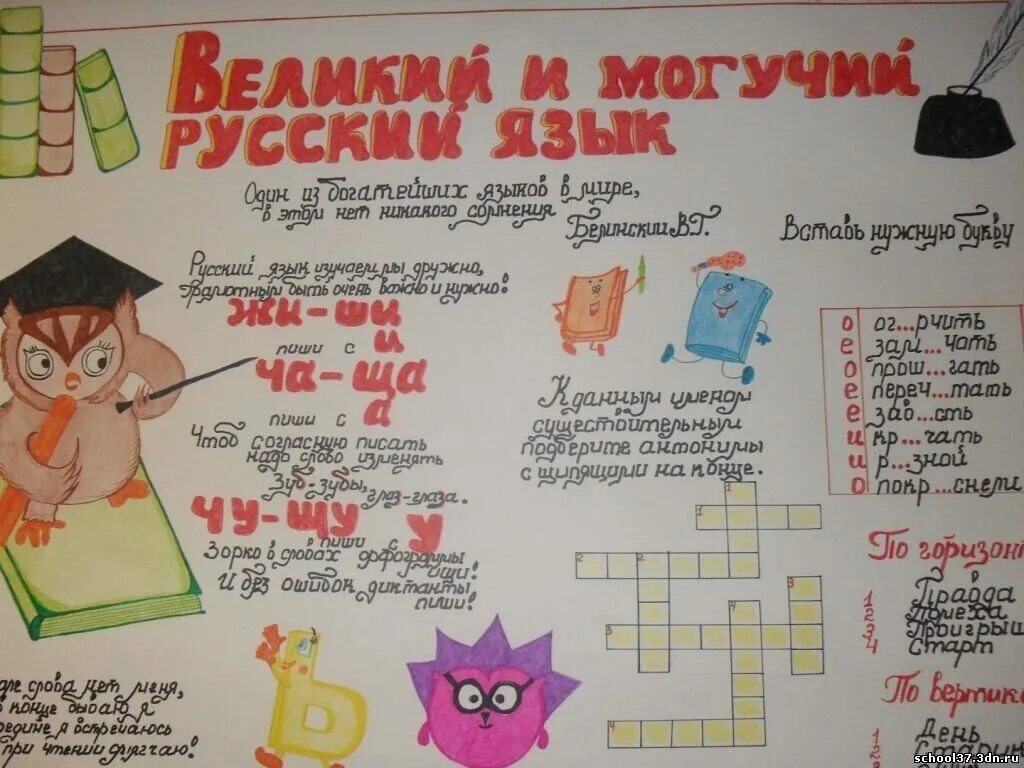 Великий и могучий
русский язык
Один из богатейших языков в мире,
в этом нет никакого сомнения
Белинский В.Г.
Русский язык изучаем мы дружно,
Грамотным быть очень важно и нужно!
жи-ши
пиши с и
ча-ща
пиши с а
Чтоб согласную писать
надо слово изменять
Зуб-зубы, глаз-глаза.
чу-щу
пиши с у
Зорко в словах орфограммы
ищи!
И без ошибок диктанты
пиши!
але слова нет меня,
в конце бываю я
редине я встречаюсь
при чтении смягчаю!
К данным именам
существительным
подберите антонимы
с шипящими на конце.
1
1
2 2
3
4
3
4
Вставь нужную букву
о ог...рчить
е зам...чать
о прош...гать
е переч...тать
е заб...сть
и кр...чать
и р...зной
о покр...снели
По горизонт
1 Правда
2 Помеха
3 Проигрыш
4 Старт
По вертика
1 День
2 Старик
school37.3dn.ru